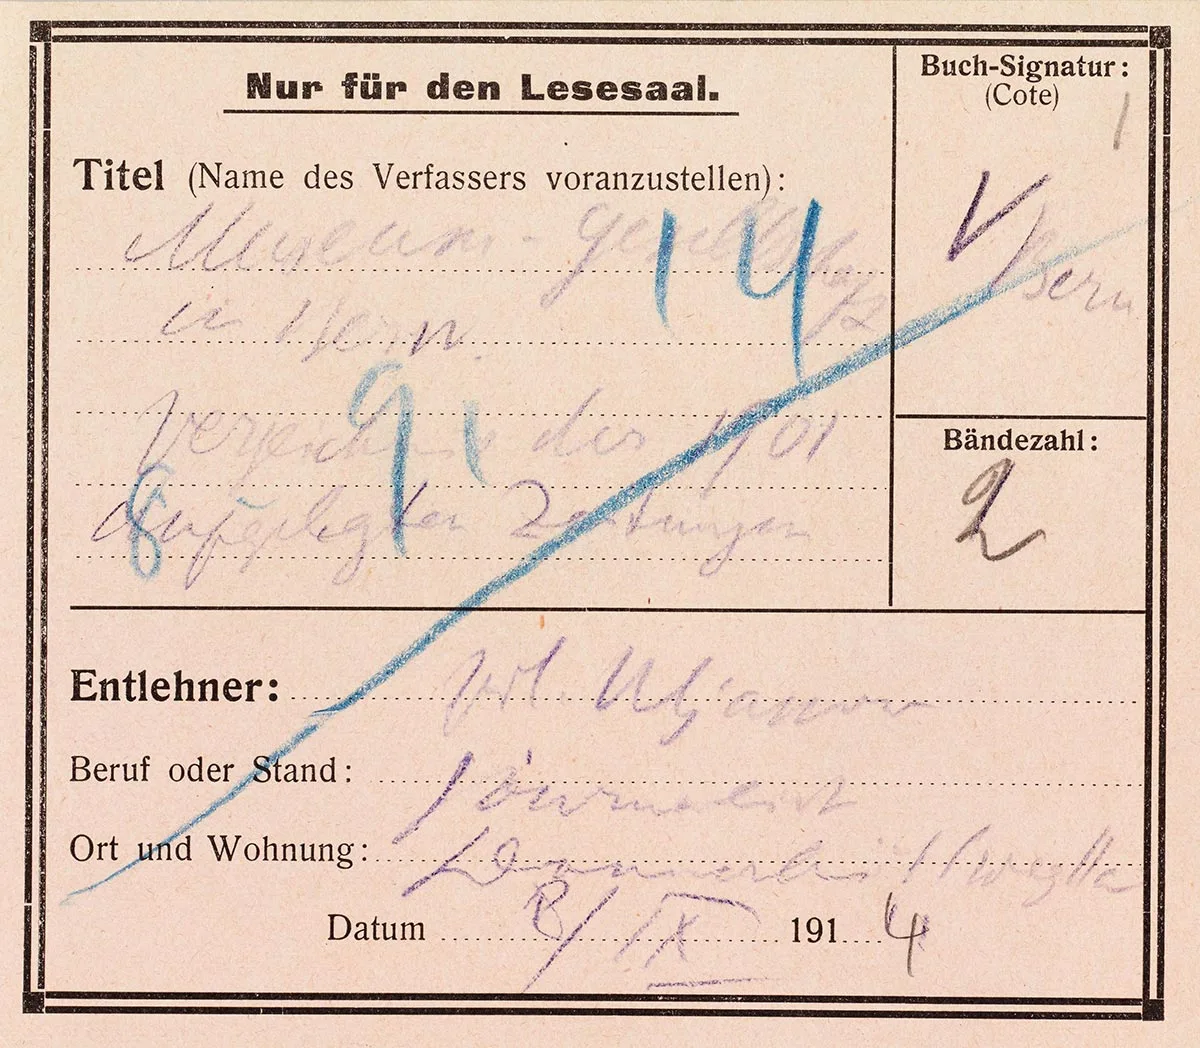 Nur für den Lesesaal.
Buch-Signatur:
(Cote)
1
Titel (Name des Verfassers voranzustellen):
V Bern
Museum-gesellschaft
14
in Bern.
Verzeichnis der 1901
91
aufgelegten Zeitungen
8
Bändezahl:
2
Entlehner: Wl. Uljanow
Beruf oder Stand: Journalist
Ort und Wohnung:
Datum 8/IX 1914